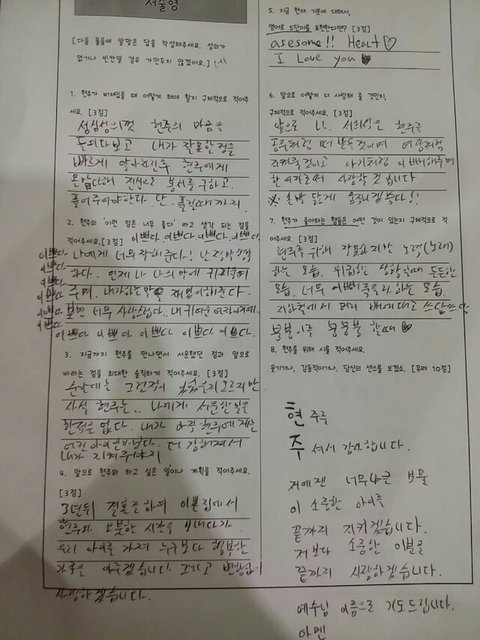 서술형
[다음 물음에 알맞은 답을 작성해주세요. 성의가
없거나 빈칸일 경우 가만두지 않겠어요.]
1. 현주가 삐져있을 때 어떻게 해야 할지 구체적으로 적어주
세요. [3점]
성심성의껏 현주의 마음은
돌려다보고 내가 잘못한 점을
빠르게 알아차린 후 현주에게
온 맘 다해 진심으로 용서를 구하고,
풀어주어야한다 단. 풀릴때까지
2. 현주의 '이런 점은 너무 좋다' 라고 생각 되는 점을
적어주세요. [3점] 이쁘다. 이쁘다 이쁘다 이쁘다.
이쁘다. 나에게 너무 잘해준다.! 난
하다. 언제나 나의 말에 귀 기울여
주며, 내가하는 말을 재밌어해준다.
보면 너무 사랑스럽다.
이쁘다 이쁘다 이쁘다 이쁘다 이쁘다.
3. 지금까지 현주를 만나면서 서운했던 점과 앞으로
바라는 점을 최대한 솔직하게 적어주세요. [3점]
순간에는 그런점이 있었을지 모르지만
사실 현주는.. 나에게 서운한 일을
한적은 없다. 내가
더 강해져서
내가 지켜주야지
4. 앞으로 현주와 하고 싶은 일이나 계획을 적어주세요.
[3점]
3년뒤 결혼을 하며 이쁜집에서
현주와 오붓한 시간을 보내다가
우리 아이를 가져 누구보다 행복한
가족을 이루겠습니다. 그리고 변함없이
사랑하겠습니다.
5. 지금 현재 기분에 대해서,
영어로 5단어로 표현한다면? [3점]
asesome!! Heart ♡
I Love you ♥
6. 앞으로 어떻게 더 사랑해 줄 것인지,
구체적으로 적어주세요. [3점]
앞으로 나. 서희성은 현주를
공주처럼 떠받들것이며 여왕처럼
지켜줄것이고 아기처럼 이뻐해주며
한 여자로써 사랑할 것 입니다.
7. 현주가 좋아하는 행동은 어떤 것이 있는지 구체적으로 적
어주세요 [3점]
현주를 위해 잘못하지만 노력(노래)
하는 모습, 위험한 상황일때 든든한
모습, 너무 이뻐해주는 모습.
지하철에서 머리 배에 대고 쓰담쓰담
8. 현주를 위해 시를 적어주세요.
웃기거나, 감동적이거나, 당신의 센스를 보겠소. [무려 10점]
현 주를
주 셔서 감사합니다.
저에겐 너무나 큰 보물
이 소중한 아이를
끝까지 지키겠습니다.
저보다 소중한 이분을
끝까지 사랑하겠습니다.
예수님 이름으로 기도드립니다.
아멘